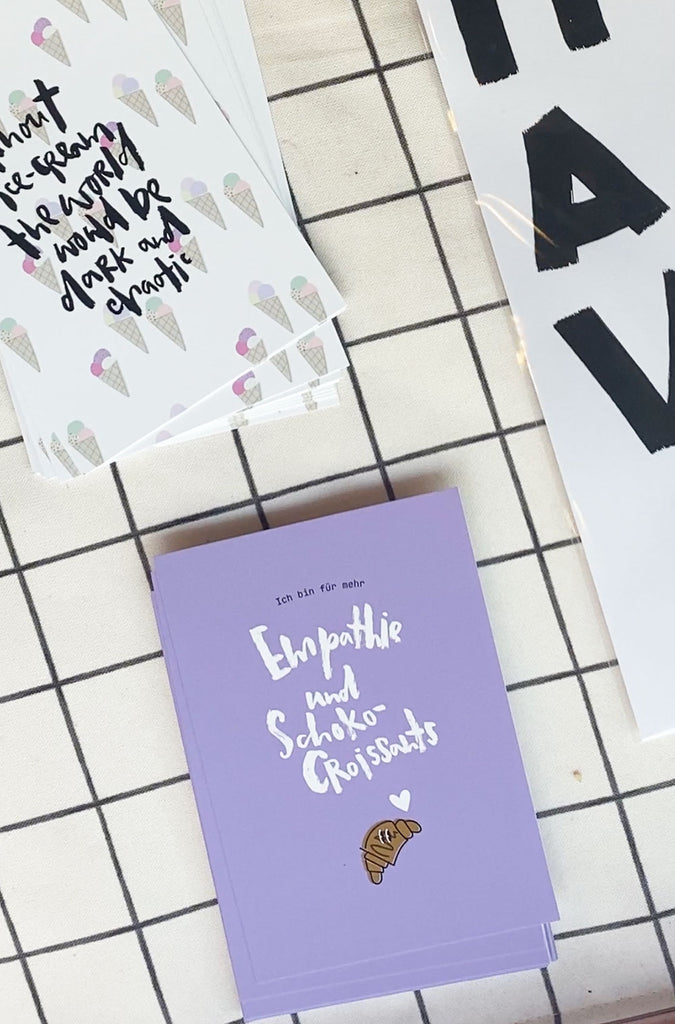 ice-cream
the world
would be
dark and
chaotic
Ich bin für mehr
Empathie
und
Schoko-
Croissants
A